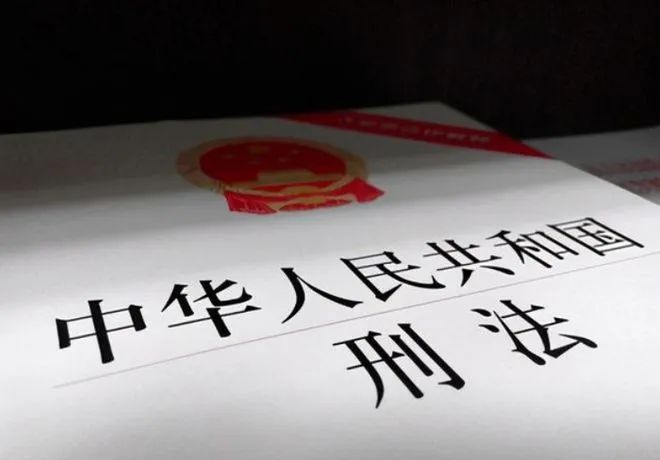 中华人民共和国
刑法